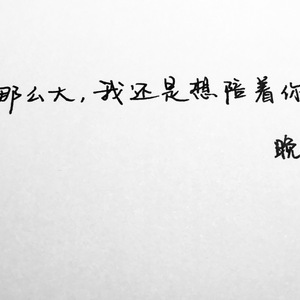 那么大，我还是想陪着你
晚